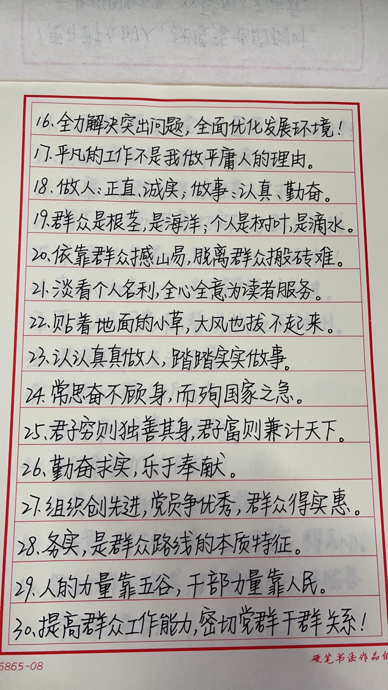 16.全力解决突出问题,全面优化发展环境!
17.平凡的工作不是我做平庸人的理由。
18.做人:正直、诚实;做事:认真、勤奋。
19.群众是根茎,是海洋;个人是树叶,是滴水。
20.依靠群众撼山易,脱离群众搬砖难。
21.淡看个人名利,全心全意为读者服务。
22.贴着地面的小草,大风也拔不起来。
23.认认真真做人,踏踏实实做事。
24.常思奋不顾身,而殉国家之急。
25.君子穷则独善其身,君子富则兼计天下。
26.勤奋求实,乐于奉献。
27.组织创先进,党员争优秀,群众得实惠。
28.务实,是群众路线的本质特征。
29.人的力量靠五谷,干部力量靠人民。
30.提高群众工作能力,密切党群干群关系!
5865-08
硬笔书法作品纸